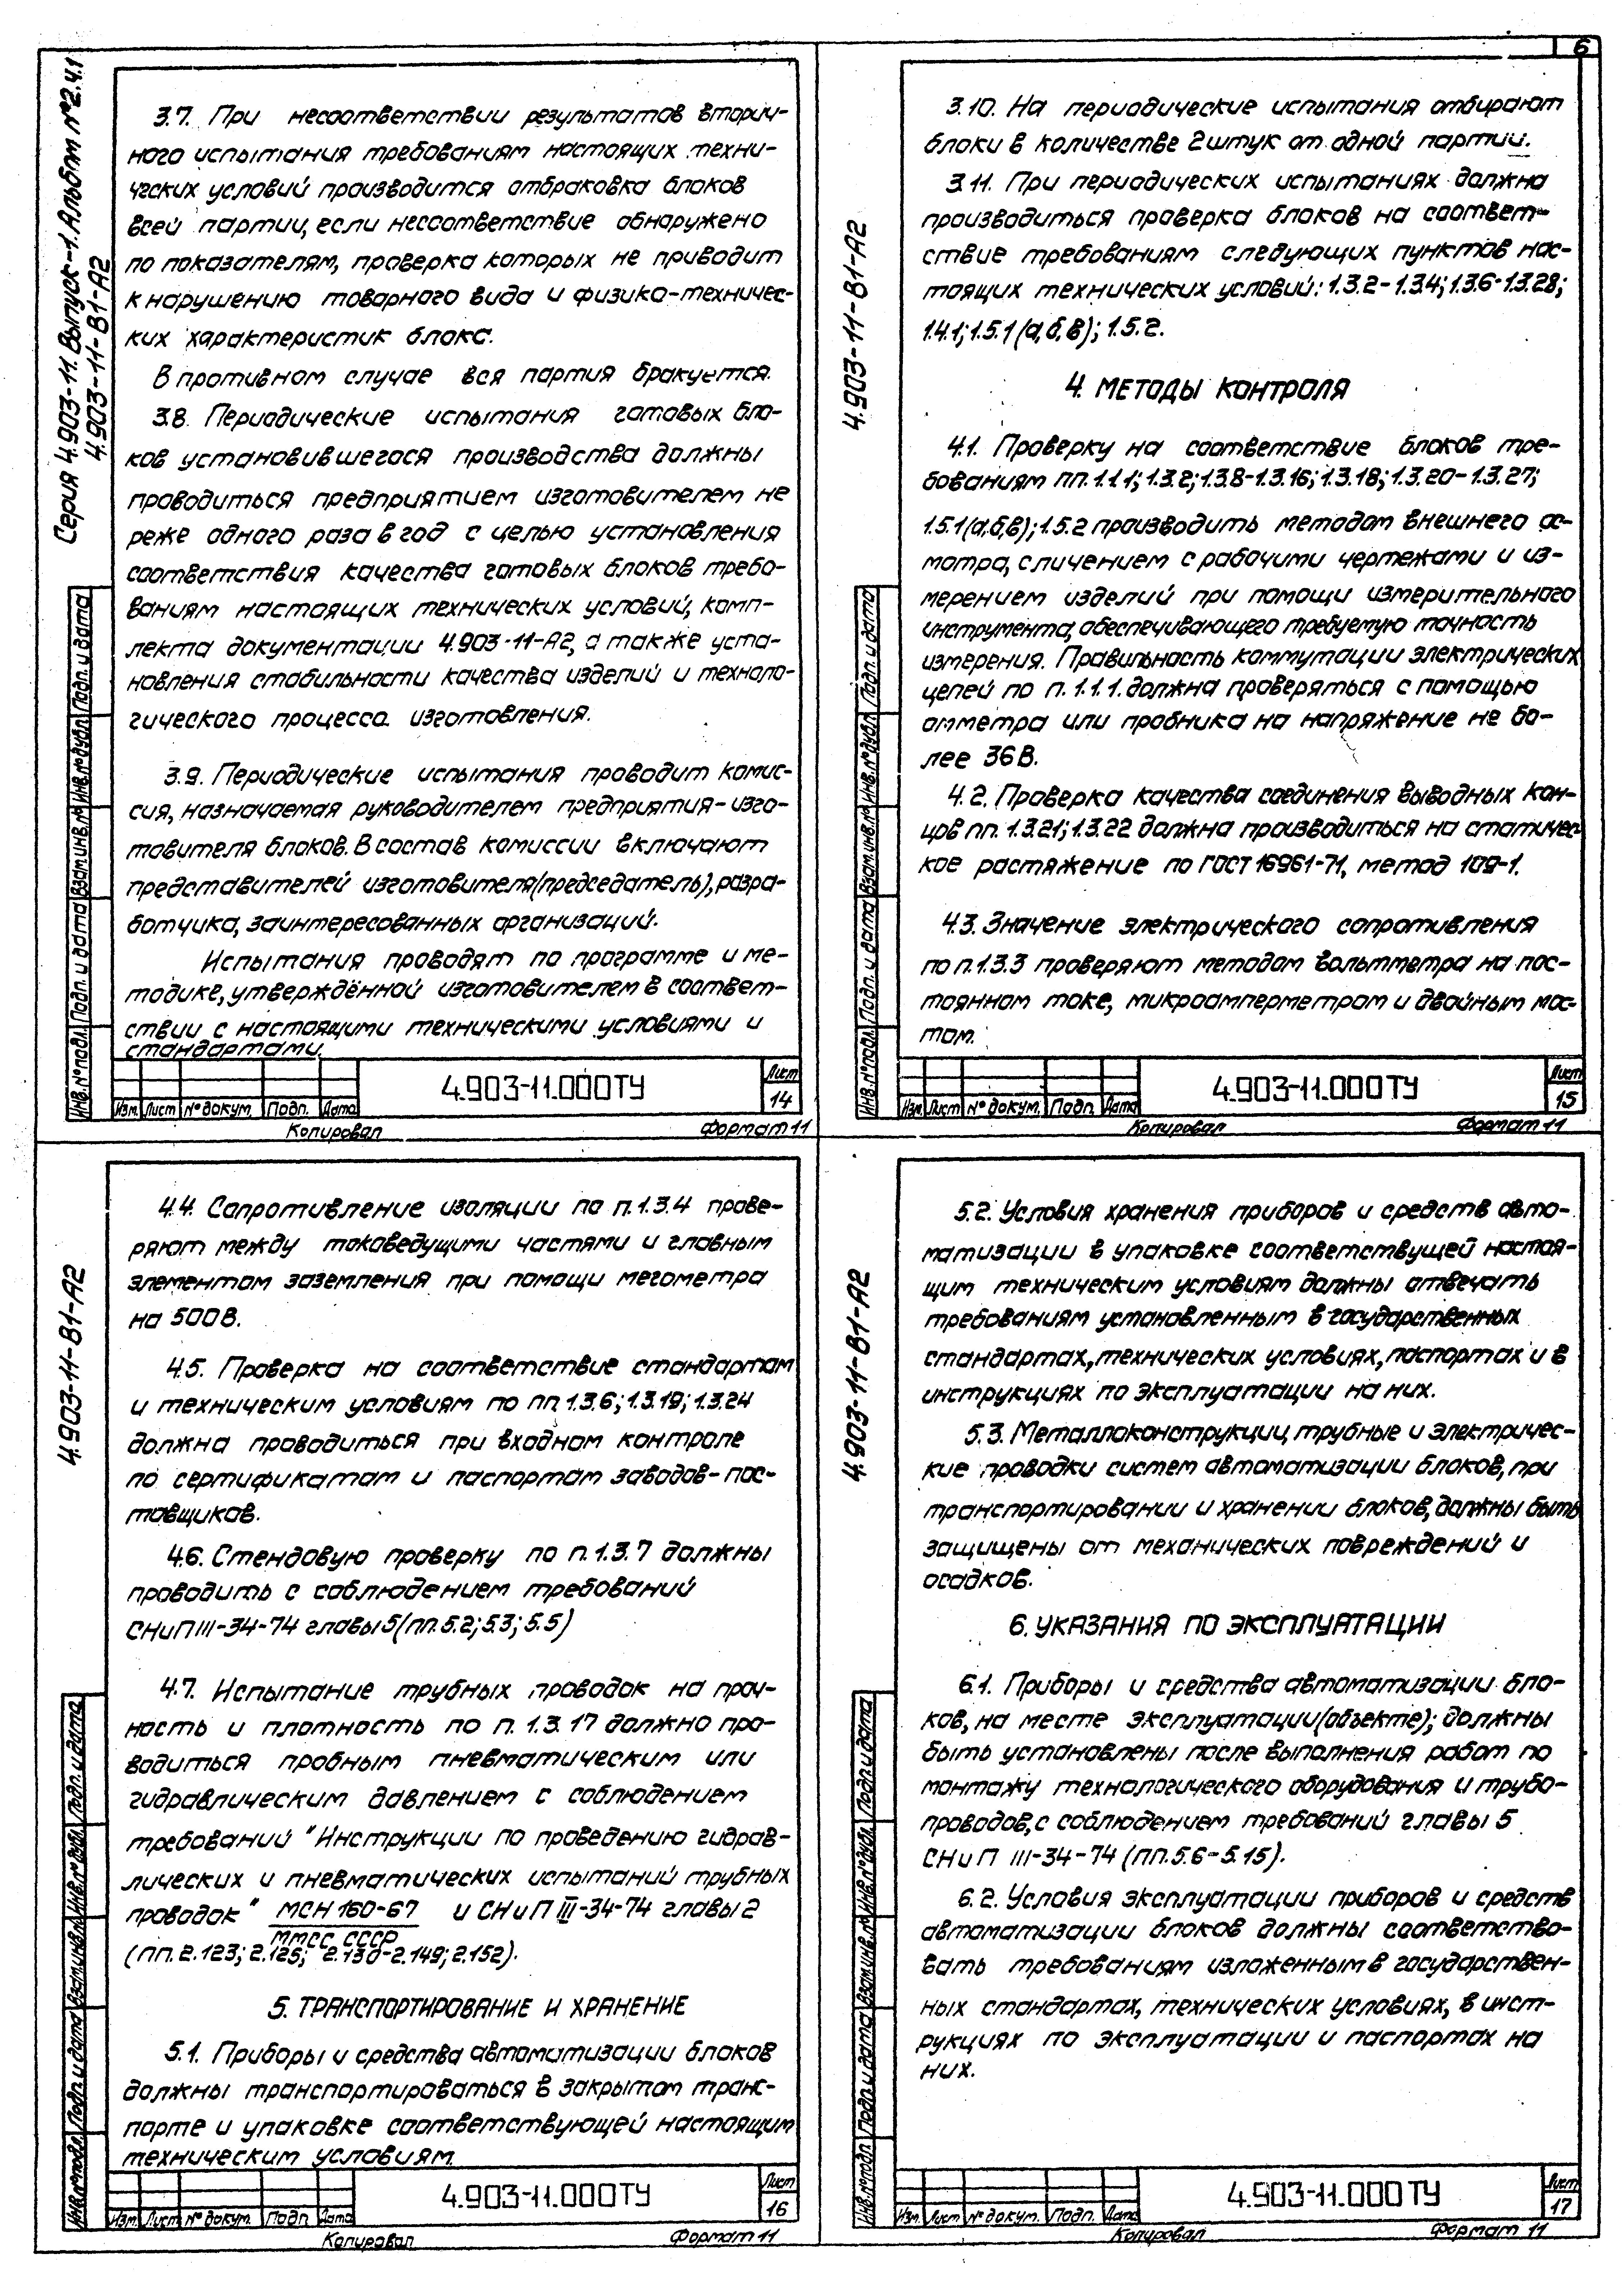 6
Серия 4.903-11. Выпуск-1. Альбом №2.Ч.1
4.903-11-В1-А2
3.7. При несоответствии результатов вторич-
ного испытания требованиям настоящих техни-
ческих условий производится отбраковка блоков
всей партии, если несоответствие обнаружено
по показателям, проверка которых не приводит
к нарушению товарного вида и физико-техничес-
ких характеристик блока.
В противном случае вся партия бракуется.
3.8. Периодические испытания готовых бло-
ков установившегося производства должны
проводиться предприятием изготовителем не
реже одного раза в год с целью установления
соответствия качества готовых блоков требо-
ваниям настоящих технических условий, комп-
лекта документации 4.903-11-А2, а также уста-
новления стабильности качества изделий и техноло-
гического процесса изготовления.
3.9. Периодические испытания проводит комис-
сия, назначаемая руководителем предприятия-изго-
товителя блоков. В состав комиссии включают
представителей изготовителя (председатель), разра-
ботчика, заинтересованных организаций.
Испытания проводят по программе и ме-
тодике, утверждённой изготовителем в соответ-
ствии с настоящими техническими условиями и
стандартами.
Инв.№подл. Подп. и дата Взам.инв.№ Инв.№дубл. Подп. и дата
Изм. Лист № докум. Подп. Дата
4.903-11.000ТУ
Лист
14
Копировал Формат 11
4.903-11-В1-А2
3.10. На периодические испытания отбирают
блоки в количестве 2 штук от одной партии.
3.11. При периодических испытаниях должна
производиться проверка блоков на соответ-
ствие требованиям следующих пунктов нас-
тоящих технических условий: 1.3.2-1.3.4; 1.3.6-1.3.28;
1.4.1; 1.5.1(а,б,в); 1.5.2.
4. МЕТОДЫ КОНТРОЛЯ
4.1. Проверку на соответствие блоков тре-
бованиям пп. 1.1.1; 1.3.2; 1.3.8-1.3.16; 1.3.18; 1.3.20-1.3.27;
1.5.1(а,б,в); 1.5.2 производить методом внешнего ос-
мотра, сличением с рабочими чертежами и из-
мерением изделий при помощи измерительного
инструмента, обеспечивающего требуемую точность
измерения. Правильность коммутации электрических
цепей по п. 1.1.1. должна проверяться с помощью
омметра или пробника на напряжение не бо-
лее 36 В.
4.2. Проверка качества соединения выводных кон-
цов пп. 1.3.21; 1.3.22 должна производиться на статичес-
кое растяжение по ГОСТ 16961-71, метод 109-1.
4.3. Значение электрического сопротивления
по п.1.3.3 проверяют методом вольтметра на пос-
тоянном токе, микроамперметром и двойным мос-
том.
Инв.№подл. Подп. и дата Взам.инв.№ Инв.№дубл. Подп. и дата
Изм. Лист № докум. Подп. Дата
4.903-11.000ТУ
Лист
15
Копировал Формат 11
4.903-11-В1-А2
4.4. Сопротивление изоляции по п.1.3.4 прове-
ряют между токоведущими частями и главным
элементом заземления при помощи мегометра
на 500 В.
4.5. Проверка на соответствие стандартам
и техническим условиям по пп 1.3.6; 1.3.19; 1.3.24
должна проводиться при входном контроле
по сертификатам и паспортам заводов-пос-
тавщиков.
4.6. Стендовую проверку по п.1.3.7 должны
проводить с соблюдением требований
СНиП III-34-74 главы 5 (пп. 5.2; 5.3; 5.5)
4.7. Испытание трубных проводок на проч-
ность и плотность по п. 1.3.17 должно про-
водиться пробным пневматическим или
гидравлическим давлением с соблюдением
требований "Инструкции по проведению гидрав-
лических и пневматических испытаний трубных
проводок" МСН 160-67 и СНиП III-34-74 главы 2
ММСС СССР
(пп. 2.123; 2.125; 2.130-2.149; 2.152).
5. ТРАНСПОРТИРОВАНИЕ И ХРАНЕНИЕ
5.1. Приборы и средства автоматизации блоков
должны транспортироваться в закрытом транс-
порте и упаковке соответствующей настоящим
техническим условиям.
Инв.№подл. Подп. и дата Взам.инв.№ Инв.№дубл. Подп. и дата
Изм. Лист № докум. Подп. Дата
4.903-11.000ТУ
Лист
16
Копировал Формат 11
4.903-11-В1-А2
5.2. Условия хранения приборов и средств авто-
матизации в упаковке соответствущей настоя-
щим техническим условиям должны отвечать
требованиям установленным в государственных
стандартах, технических условиях, паспортах и в
инструкциях по эксплуатации на них.
5.3. Металлоконструкции, трубные и электричес-
кие проводки систем автоматизации блоков, при
транспортировании и хранении блоков, должны быть
защищены от механических повреждений и
осадков.
6. УКАЗАНИЯ ПО ЭКСПЛУАТАЦИИ
6.1. Приборы и средства автоматизации бло-
ков, на месте эксплуатации (объекте); должны
быть установлены после выполнения работ по
монтажу технологического оборудования и трубо-
проводов, с соблюдением требований главы 5
СНиП III-34-74 (пп. 5.6-5.15).
6.2. Условия эксплуатации приборов и средств
автоматизации блоков должны соответство-
вать требованиям изложенным в государствен-
ных стандартах, технических условиях, в инст-
рукциях по эксплуатации и паспортах на
них.
Инв.№подл. Подп. и дата Взам.инв.№ Инв.№дубл. Подп. и дата
Изм. Лист № докум. Подп. Дата
4.903-11.000ТУ
Лист
17
Копировал Формат 11